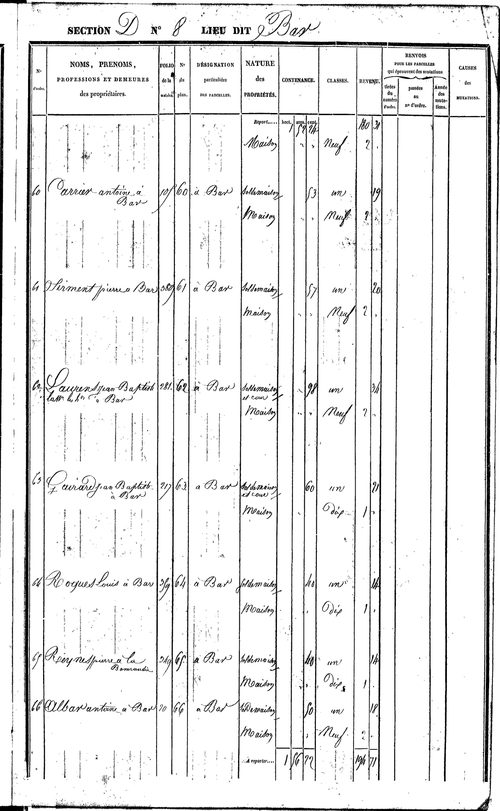 SECTION D N° 8 LIEU DIT Bar
N° d'ordre. NOMS, PRENOMS, PROFESSIONS ET DEMEURES des propriétaires. FOLIO de la matrice. N° du plan. DÉSIGNATION particulière DES PARCELLES. NATURE des PROPRIÉTÉS. CONTENANCE. CLASSES. REVENU. RENVOIS POUR LES PARCELLES qui éprouvent des mutations CAUSES des MUTATIONS.
Report..... hect. ares. cent.
Maison " " Neuf 2 "
60 Carrier antoine à 105 60 à Bar Sol de maison 53 un 19
Bar
Maison " " Neuf 2 "
61 pierre à Bar 61 à Bar Sol de maison 57 un 20
Maison " " Neuf 2 "
62 Laurens jean Baptiste 281 62 à Bar Sol de maison 98 un 34
à Bar et cour
Maison " " Neuf 2 "
63 jean Baptiste 217 63 à Bar Sol de maison 60 un 21
à Bar et cour
Maison Dix 1 "
64 Roques Louis à Bar 64 à Bar Sol de maison 40 un 14
Maison " " Dix 1 "
65 pierre à la 65 à Bar Sol de maison 40 un 14
Maison " " Dix 1
66 Albar antoine à Bar 66 à Bar Sol de maison 50 un 18
Maison " Neuf 2 "
A reporter..... 1 56 72 196 71